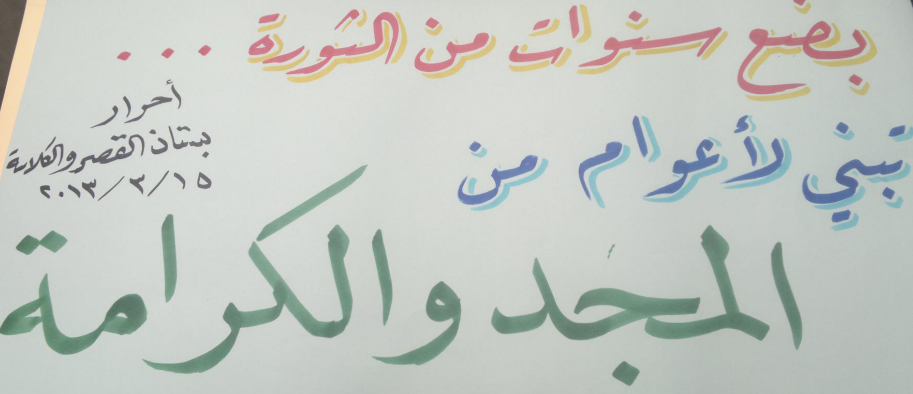 بضع سنوات من الثورة ...
تبني لأعوام من
المجد والكرامة
أحرار
بستان القصر والكلاسة
٢٠١٣/٣/١٥